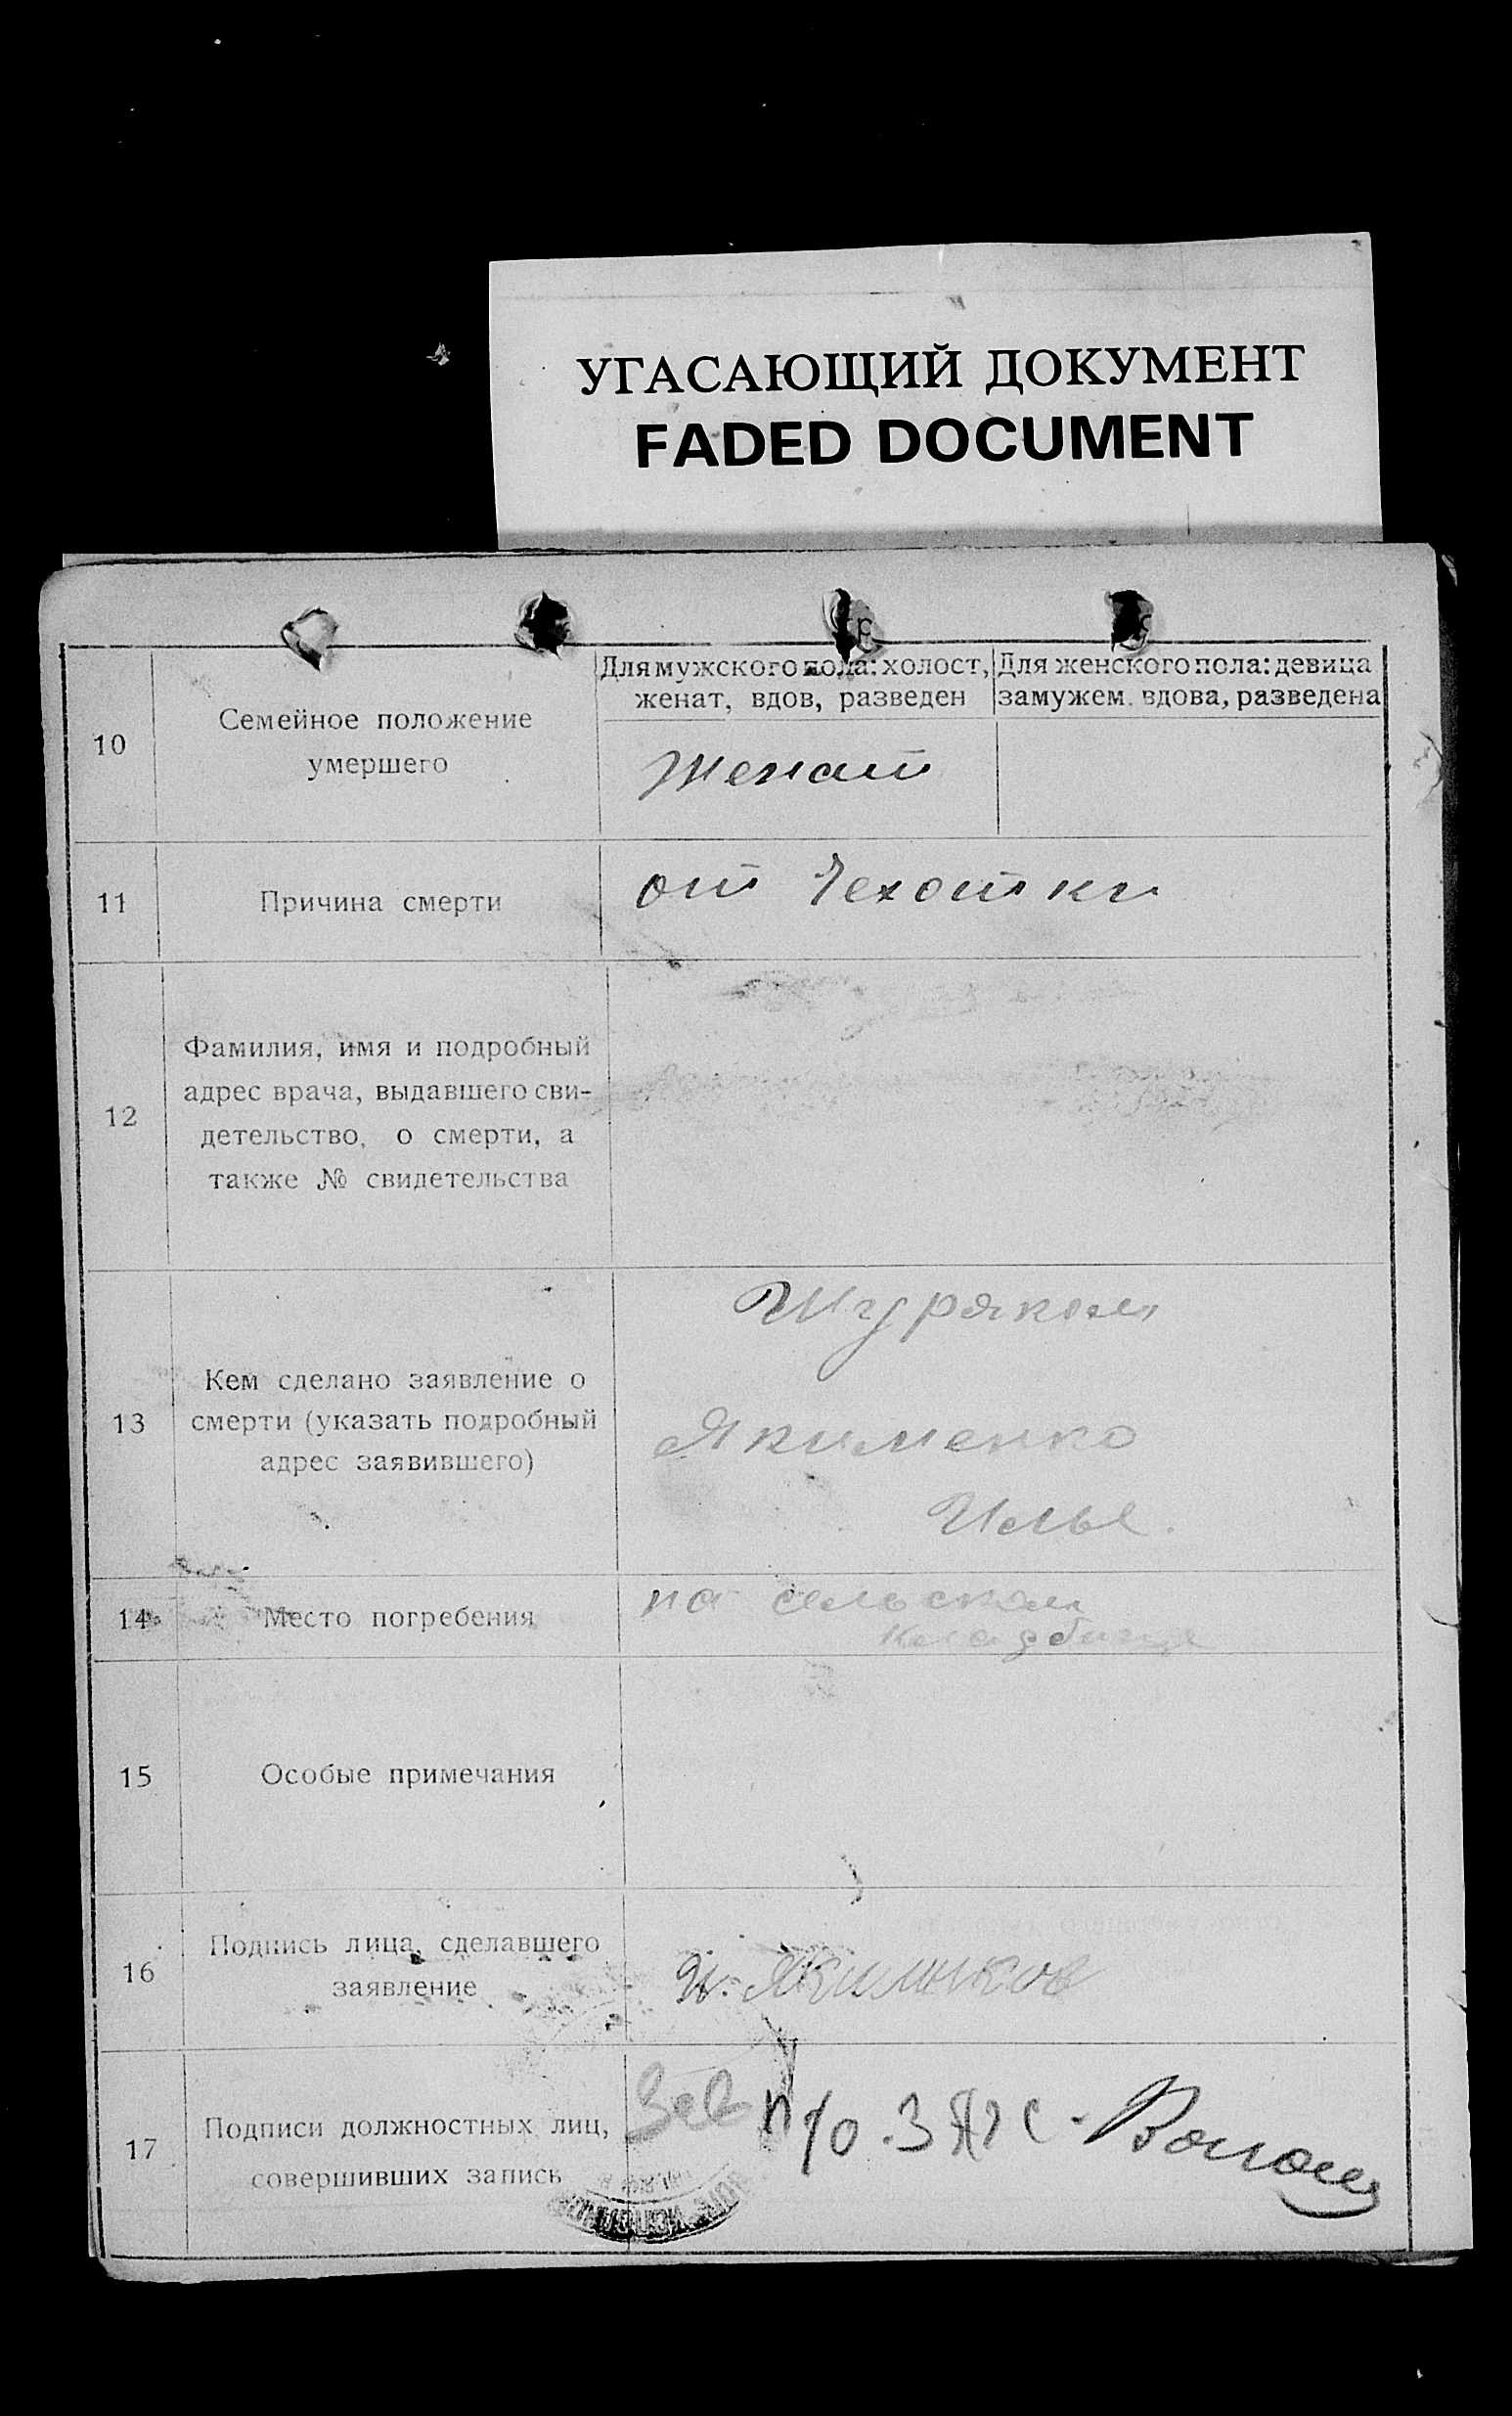 УГАСАЮЩИЙ ДОКУМЕНТ
FADED DOCUMENT
10
Семейное положение
умершего
Для мужского пола: холост,
женат, вдов, разведен
Для женского пола: девица
замужем, вдова, разведена
женат
11
Причина смерти
от чехотки
12
Фамилия, имя и подробный
адрес врача, выдавшего сви-
детельство, о смерти, а
также № свидетельства
13
Кем сделано заявление о
смерти (указать подробный
адрес заявившего)
Шуряком
Якименко
Илье.
14
Место погребения
на сельском
кладбище
15
Особые примечания
16
Подпись лица, сделавшего
заявление
17
Подписи должностных лиц,
совершивших запись
Зав